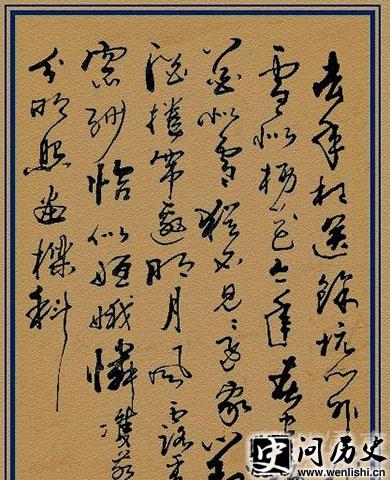 去年相送餘杭門外
雪似楊花今年春
花似雪猶不見還家對
酒捲帘邀明月風露透
窗紗恰似姮娥憐雙燕
分明照畫樑斜
问历史
www.wenlishi.cn